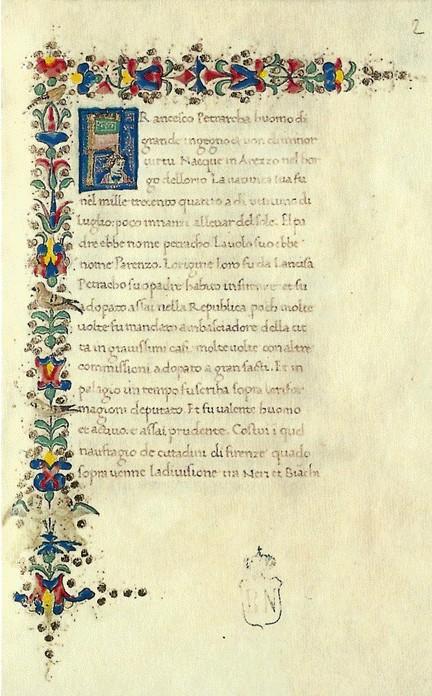 2
FRancesco Petrarcha huomo di
grande ingegno & non di minor
uirtu Nacque in Arezzo nel bor
go dellorto La natiuita sua fu
nel mille trecento quattro a di
luglio poco innanzi alleuar del sole. El pa
dre ebbe nome petracho Lauolo suo ebbe
nome Parenzo. Lorigine loro fu da Lancisa
Petracho suo padre habito in firenze et fu
adopato assai nella Republica poche molte
uolte fu mandato ambasciadore della cit
ta in grauissimi casi molte uolte con altre
commissioni adopato a gran facti. Et in
palagio un tempo fu scriba sopra le rifor
magioni deputato. Et fu ualente huomo
et actiuo e assai prudente. Costui i quel
naufragio de cittadini di firenze quãdo
sopra uenne la diuisione tra Neri et Biãchi
BN